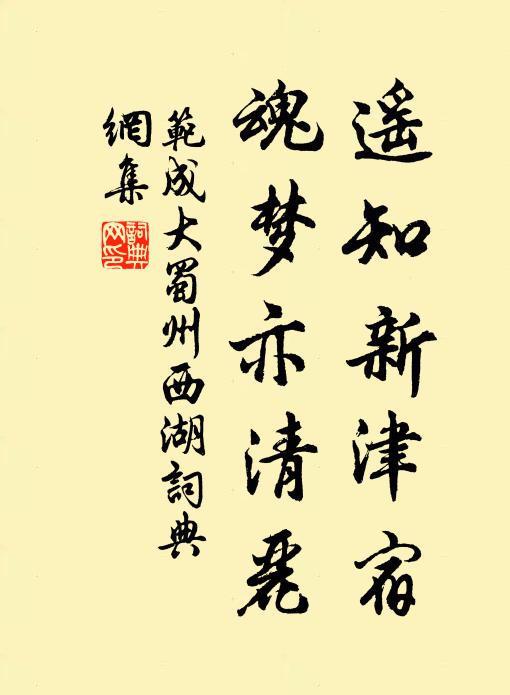 遥知新津宿
魂梦亦清麗
範成大蜀州西湖詞典
網集
詞典网印